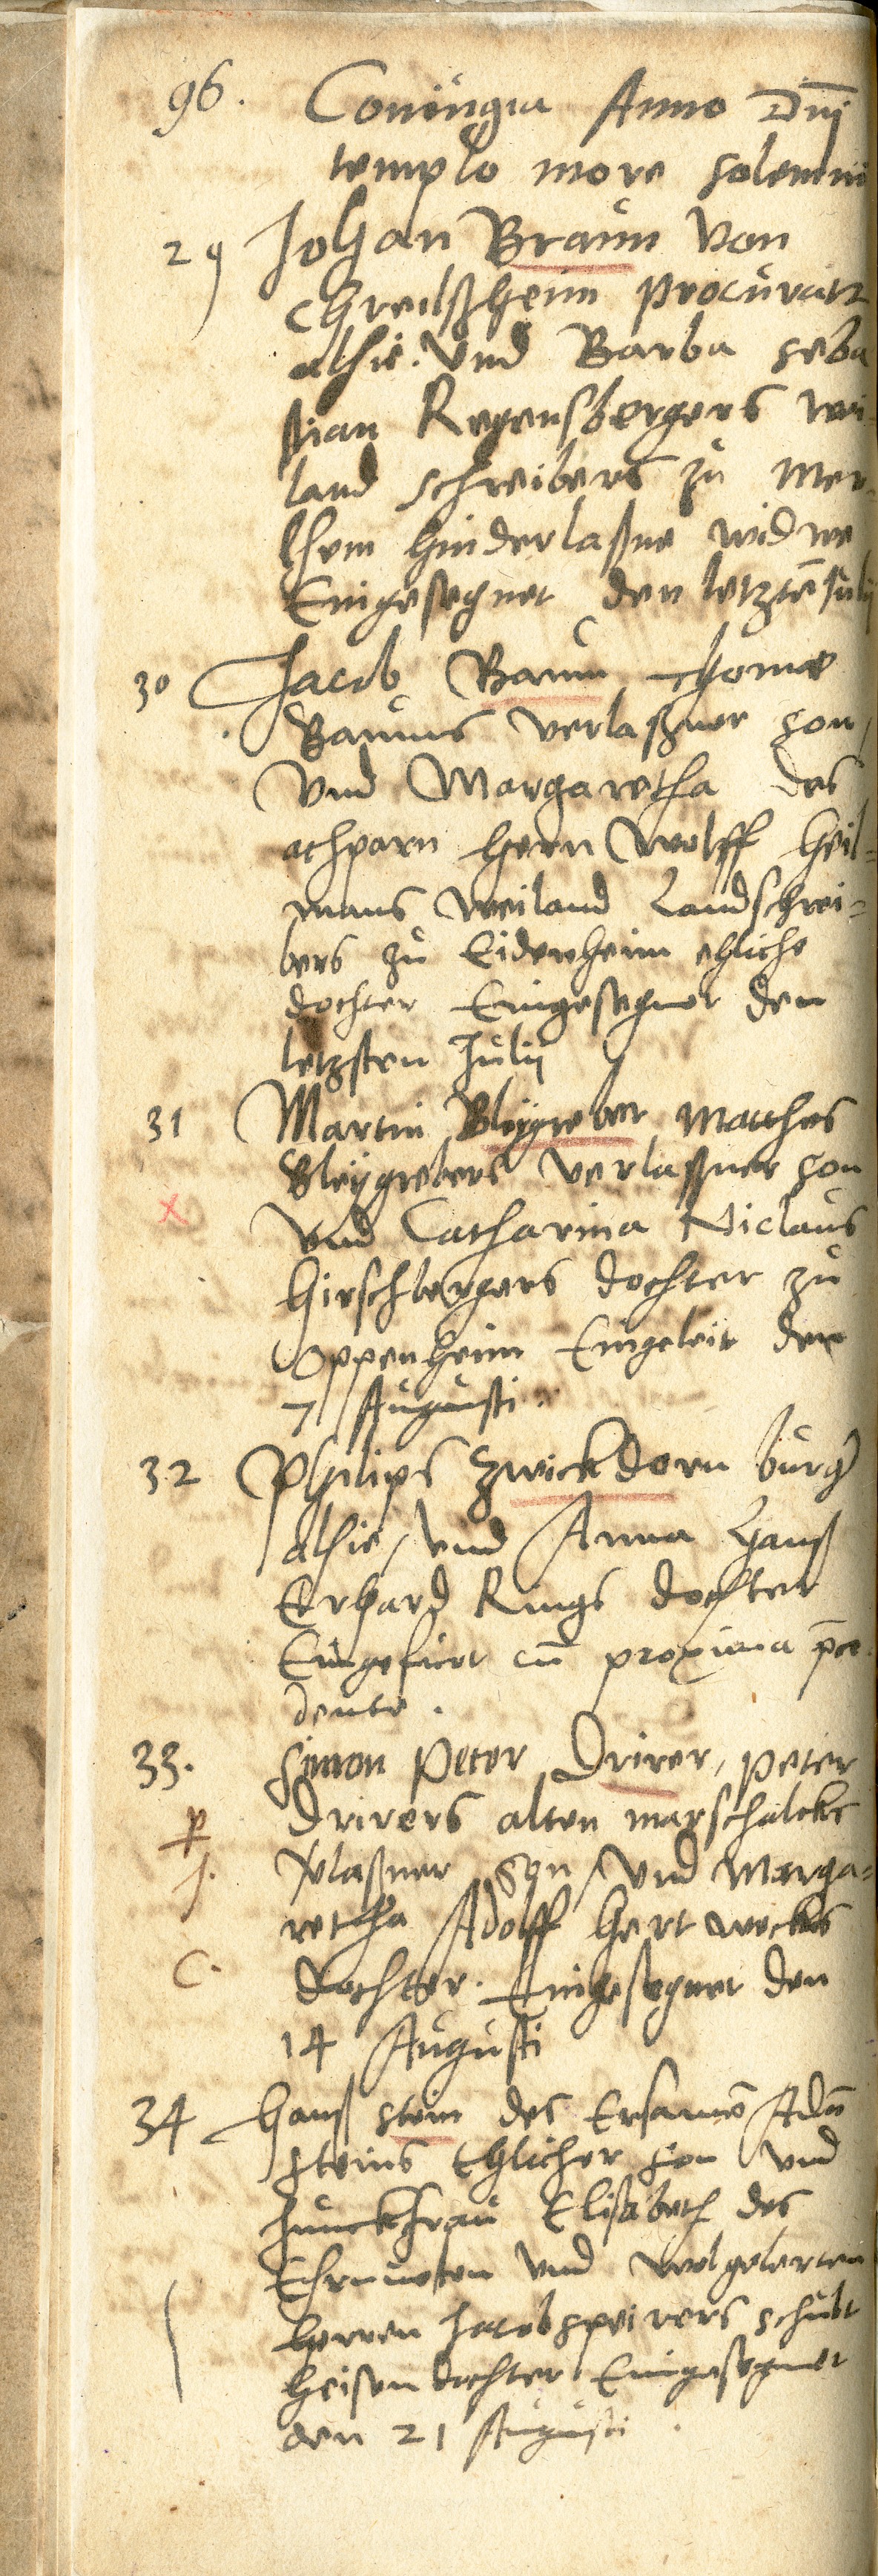 96. Coniugia Anno Dni
templo more solemni
29 Johan Braun von
Chreilßheim procurat
alhie. und Barba seba
stian Regensbergers wei
land schreibers zu Mer
hinderlaßne widwe
Eingesegnet den letzte Julij
30 Jacob Baum Thomæ
Baums verlaßner son,
und Margaretha des
achparn hern Wolff Heil=
mans weiland Landschrei=
bers zu Eidenheim ehliche
dochter Eingesegnet den
letzsten Julij
31 Martin Bleygreber Matthes
Bleygrebers verlaßner son
X
und Catharina Niclaus
Hirschbergers dochter zu
Oppenheim Eingeleit den
7 Augusti.
32 Philips Zwickdorn burg
alhie, und Anna Hanß
Erhard Rings dochter
Eingefürt cū proxima p̄ce
dente.
33. Simon Peter Drirer, Peter
Drirers alten marschalcks
vlaßner son, und Marga=
retha Adolff Hertwecks
C. dochter. Eingesegnet den
14 Augusti
34 Hanß Stein des Ersamē Adā
Steins Ehlicher son und
Junckfrau Elisabeth des
Ehrnvesten und wolgelerten
herren Jacob Speirers schult
heisen dochter Eingesegnet
den 21 Augusti.